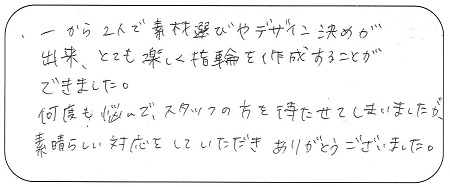 一から2人で素材選びやデザイン決めが
出来、とても楽しく指輪を作成することが
できました。
何度も悩んで、スタッフの方を待たせてしまいましたが、
素晴らしい対応をしていただきありがとうございました。